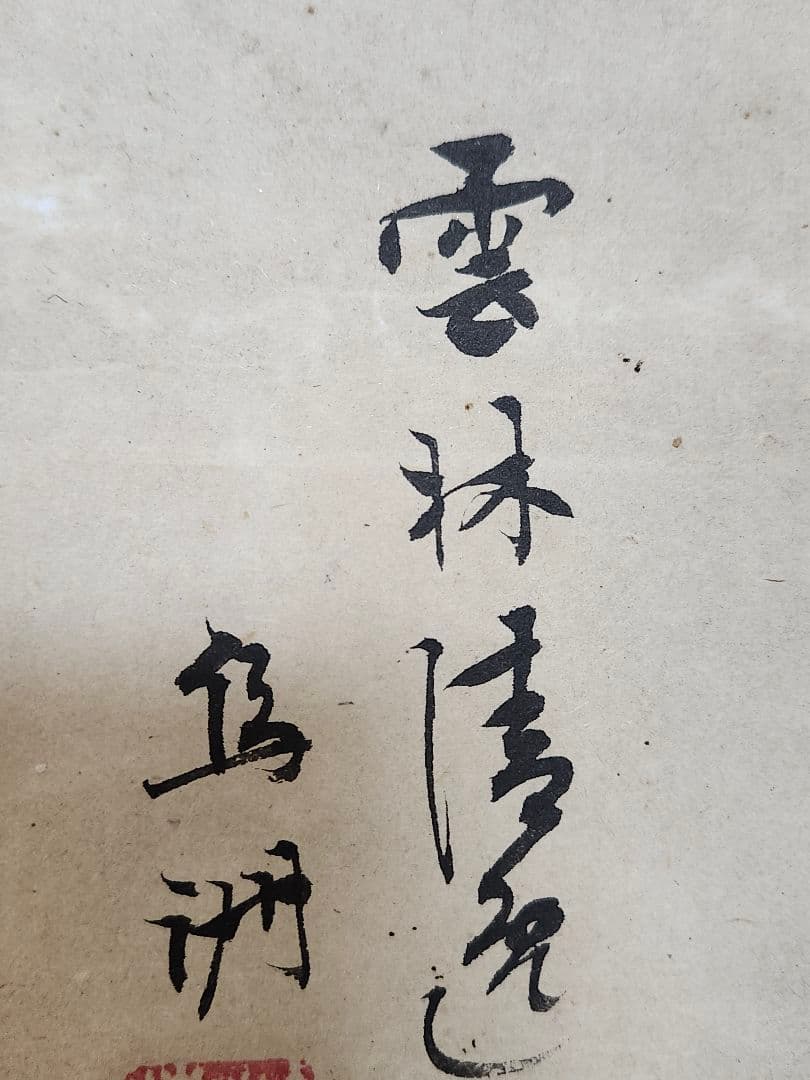 雲林清逸
烏洲